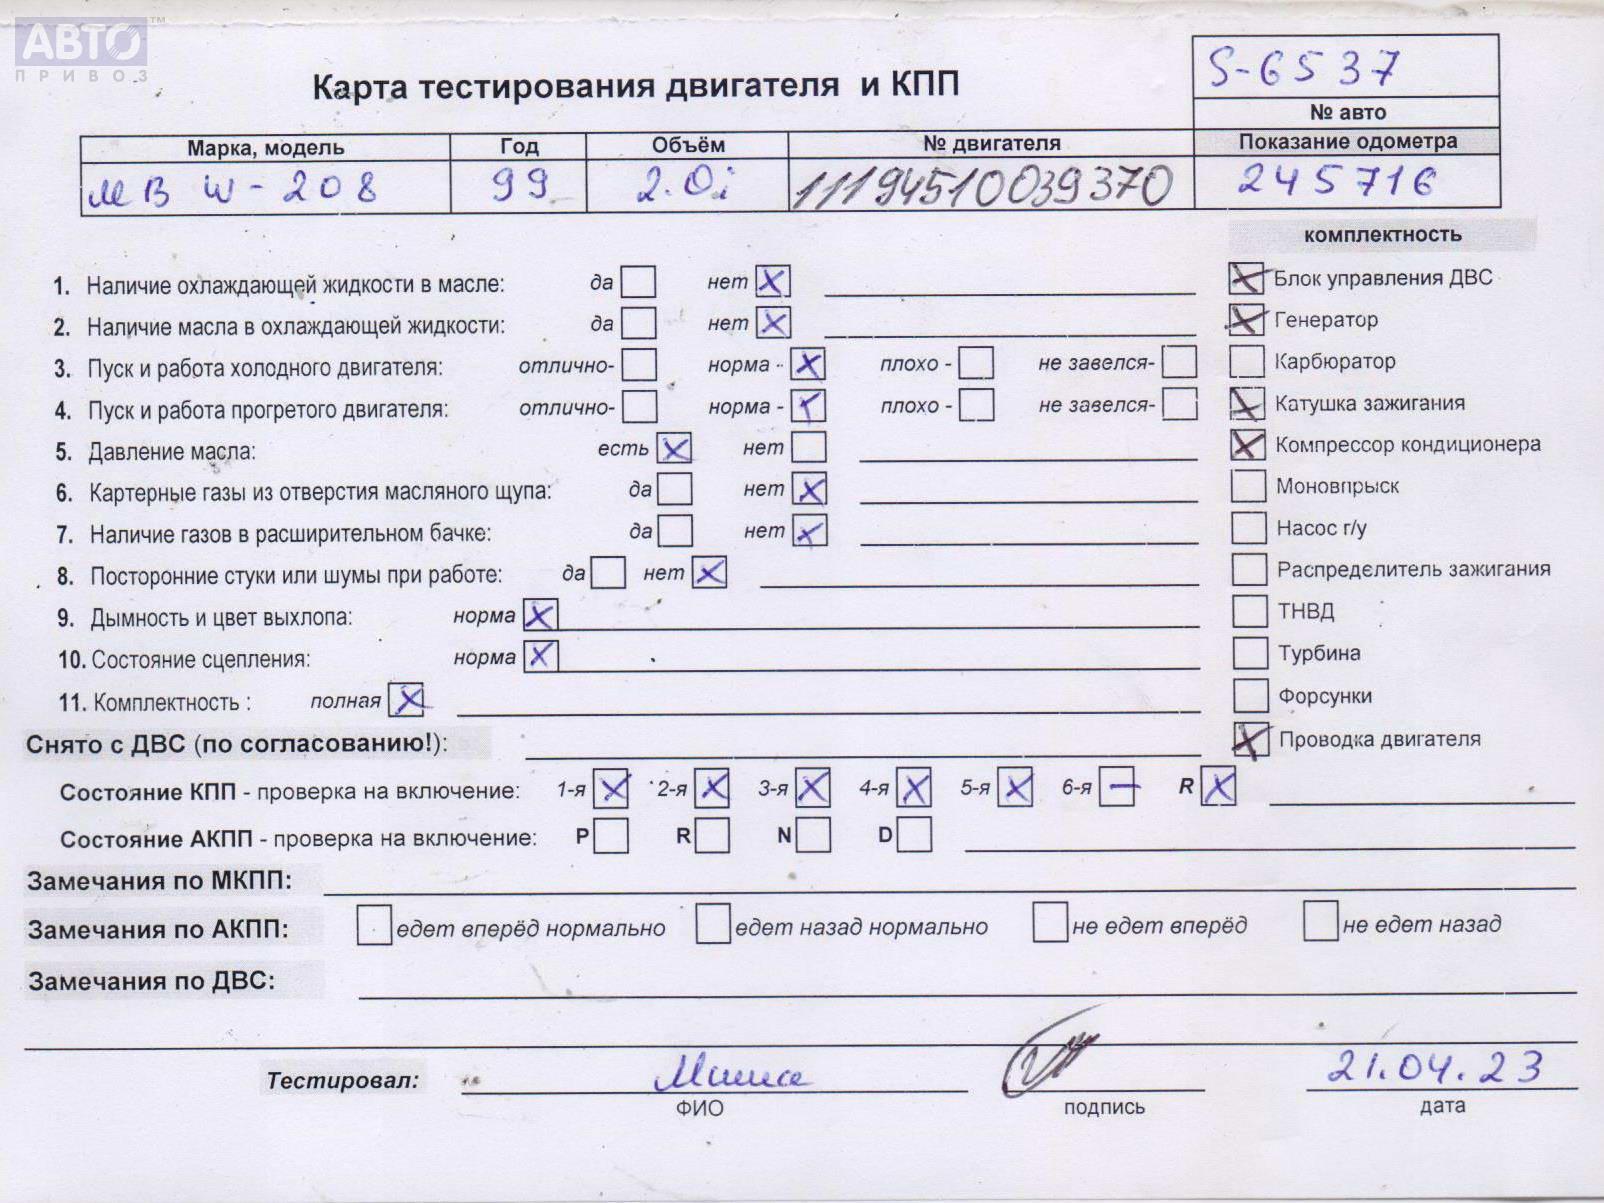 АВТО™
ПРИВОЗ
S-6537
Карта тестирования двигателя и КПП
№ авто
Марка, модель Год Объём № двигателя Показание одометра
МВ W-208 99 2.0i 11194510039370 245716
комплектность
1. Наличие охлаждающей жидкости в масле: да нет
Блок управления ДВС
2. Наличие масла в охлаждающей жидкости: да нет
Генератор
3. Пуск и работа холодного двигателя: отлично- норма - плохо - не завелся-
Карбюратор
4. Пуск и работа прогретого двигателя: отлично- норма - плохо - не завелся-
Катушка зажигания
5. Давление масла: есть нет
Компрессор кондиционера
6. Картерные газы из отверстия масляного щупа: да нет
Моновпрыск
7. Наличие газов в расширительном бачке: да нет
Насос г/у
8. Посторонние стуки или шумы при работе: да нет
Распределитель зажигания
9. Дымность и цвет выхлопа: норма
ТНВД
10. Состояние сцепления: норма
Турбина
11. Комплектность : полная
Форсунки
Снято с ДВС (по согласованию!):
Проводка двигателя
Состояние КПП - проверка на включение: 1-я 2-я 3-я 4-я 5-я 6-я R
Состояние АКПП - проверка на включение: P R N D
Замечания по МКПП:
Замечания по АКПП: едет вперёд нормально едет назад нормально не едет вперёд не едет назад
Замечания по ДВС:
Тестировал: 21.04.23
ФИО подпись дата